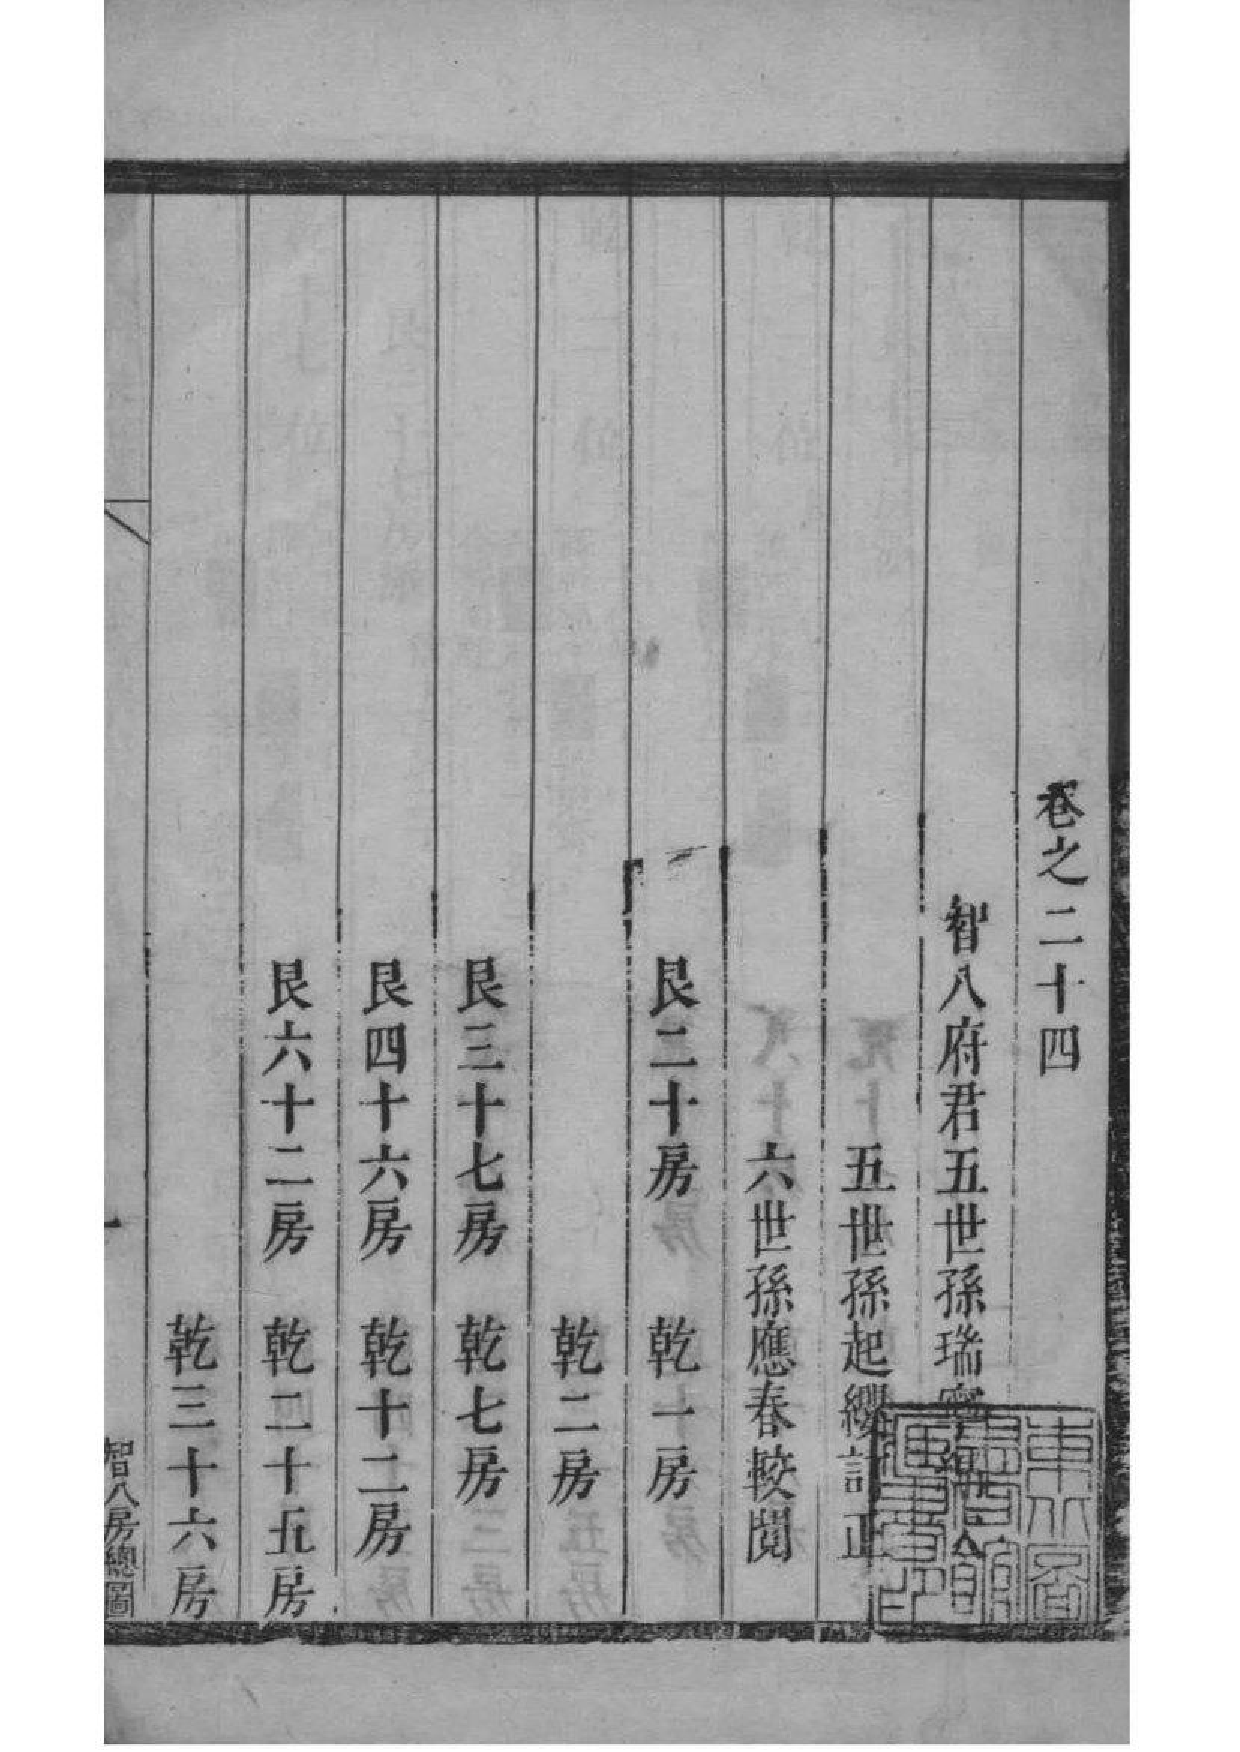 卷之二十四
智八府君五世孫瑞
五世孫起纓訂正
六世孫應春較閱
艮二十房　乾一房
乾二房
艮三十七房　乾七房
艮四十六房　乾十二房
艮六十二房　乾二十五房
乾三十六房
一
智八房總圖